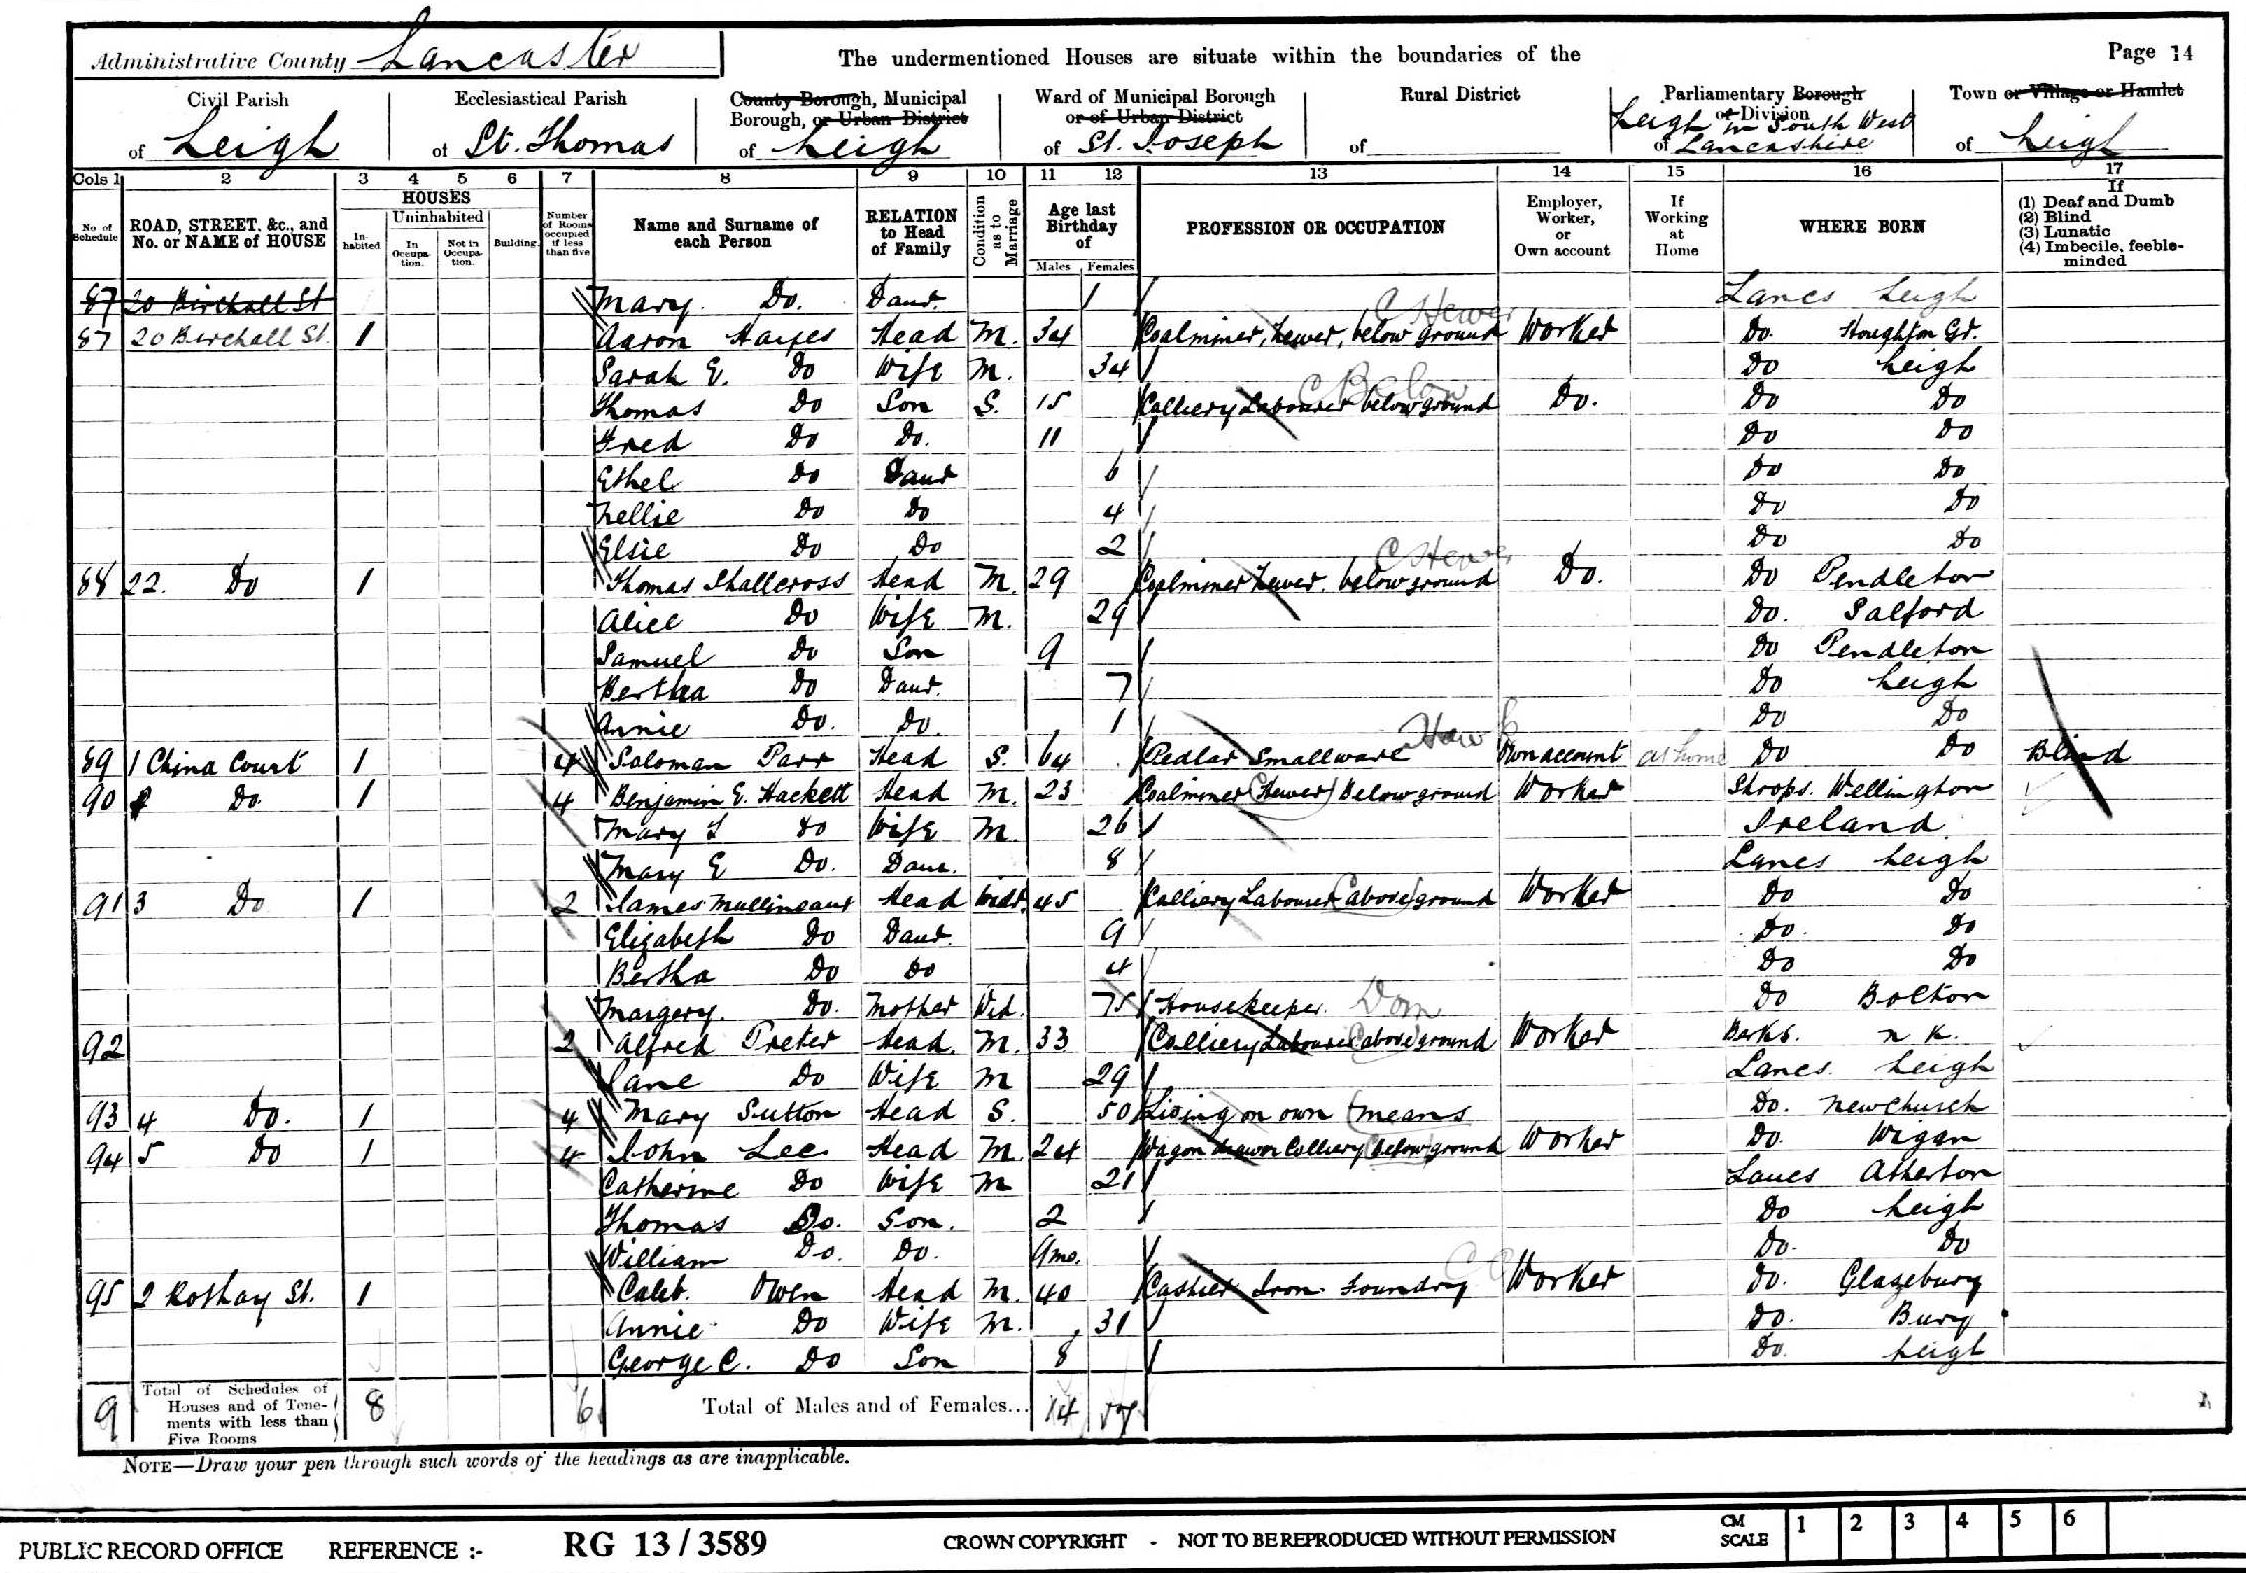 Administrative County Lancaster The undermentioned Houses are situate within the boundaries of the Page 14
Civil Parish Ecclesiastical Parish County Borough, Municipal Ward of Municipal Borough Rural District Parliamentary Borough Town or Village or Hamlet
Borough, or Urban District or of Urban District or Division
of Leigh of St. Thomas of Leigh of St. Joseph of Leigh in South West of Lancashire of Leigh
Cols 1 2 3 4 5 6 7 8 9 10 11 12 13 14 15 16 17
No. of Schedule ROAD, STREET, &c., and No. or NAME of HOUSE HOUSES Inhabited Uninhabited In Occupation. Not in Occupation. Building. Number of Rooms occupied if less than five Name and Surname of each Person RELATION to Head of Family Condition as to Marriage Age last Birthday of Males Females PROFESSION OR OCCUPATION Employer, Worker, or Own account If Working at Home WHERE BORN If (1) Deaf and Dumb (2) Blind (3) Lunatic (4) Imbecile, feeble-minded
87 20 Birchall St Mary Do. Daur. 1 Lancs Leigh
87 20 Birchall St. 1 Aaron Hayes Head M. 34 Coalminer, hewer, below ground C Hewer Worker Do. Houghton Gr.
Sarah E. Do Wife M. 34 Do Leigh
Thomas Do Son S. 15 Colliery Labourer below ground C Below Do. Do Do
Fred Do Do. 11 Do Do
Ethel Do Daur 6 Do Do
Nellie Do Do 4 Do Do
Elsie Do Do 2 Do Do
88 22. Do 1 Thomas Shallcross Head M. 29 Coalminer hewer. below ground C Hewer Do. Do Pendleton
Alice Do Wife M. 29 Do. Salford
Samuel Do Son 9 Do Pendleton
Bertha Do Daur. 7 Do Leigh
Annie Do. Do. 1 Do Do
89 1 China Court 1 4 Soloman Parr Head S. 64 Pedlar Smallware Hawk Own account at home Do Do Blind
90 Do. 1 4 Benjamin E. Hackett Head M. 23 Coalminer (Hewer) Below ground Worker Shrops. Wellington
Mary Do Wife M. 26 Ireland
Mary E Do. Daur. 8 Lancs Leigh
91 3 Do 1 2 James Mullineaux Head Widr. 45 Colliery Labourer (above) ground Worker Do Do
Elizabeth Do Daur. 9 Do. Do
Bertha Do Do 4 Do Do
Margery. Do. Mother Wid. 75 Housekeeper. Dom Do Bolton
92 2 Alfred Preter Head. M. 33 Colliery Labourer (above) ground Worker Berks. n k.
Jane Do Wife M 29 Lancs. Leigh
93 4 Do. 1 4 Mary Sutton Head S. 50 Living on own means Do. Newchurch
94 5 Do 1 4 John Lee Head M. 24 Wagon drawer Colliery (below) ground Worker Do. Wigan
Catherine Do Wife M 21 Lancs Atherton
Thomas Do. Son. 2 Do Leigh
William Do. Do. 9mo. Do. Do
95 2 Rothay St. 1 Caleb. Owen Head M. 40 Cashier Iron Foundry Worker Do. Glazebury
Annie Do Wife M. 31 Do. Bury
George C. Do Son 8 Do. Leigh
9 Total of Schedules of Houses and of Tenements with less than Five Rooms 8 6 Total of Males and of Females... 14 17
NOTE—Draw your pen through such words of the headings as are inapplicable.
PUBLIC RECORD OFFICE REFERENCE :- RG 13 / 3589 CROWN COPYRIGHT - NOT TO BE REPRODUCED WITHOUT PERMISSION CM SCALE 1 2 3 4 5 6